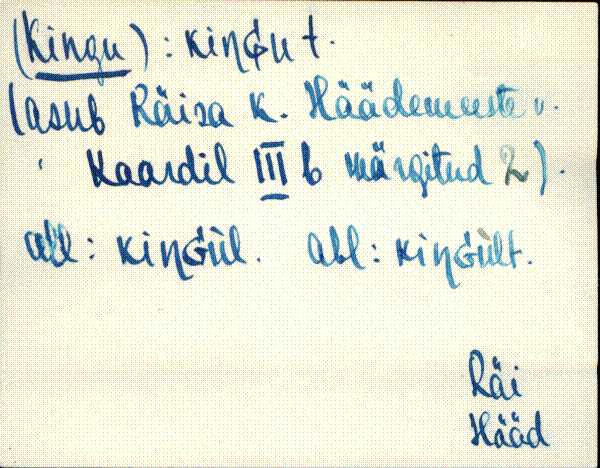 (Kingu) : kiŋGu t.
(asub Räisa k. Häädemeeste v.
Kaardil III b märgitud 2).
all : kiŋGùl. abl : kiŋGùlt.
Räi
Hääd